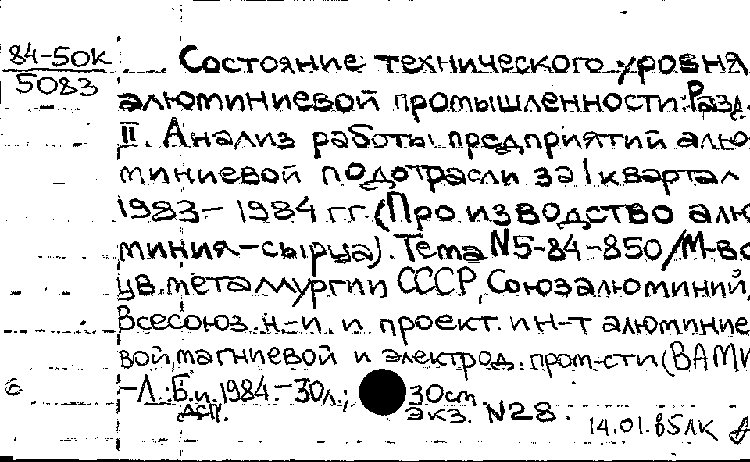 84-50К
5083
Состояние технического уровня
алюминиевой промышленности: Разд.
II. Анализ работы предприятий алю-
миниевой подотрасли за I квартал
1983-1984 гг. (Производство алю-
миния-сырца). Тема N5-84-850/М-во
цв. металлургии СССР, Союзалюминий,
Всесоюз. н-и. и проект. ин-т алюминие-
вой, магниевой и электрод. пром-сти (ВАМИ
-Л.: Б.и. 1984.-30л.; 30см.
ДСП. экз. N28.
6
14.01.85